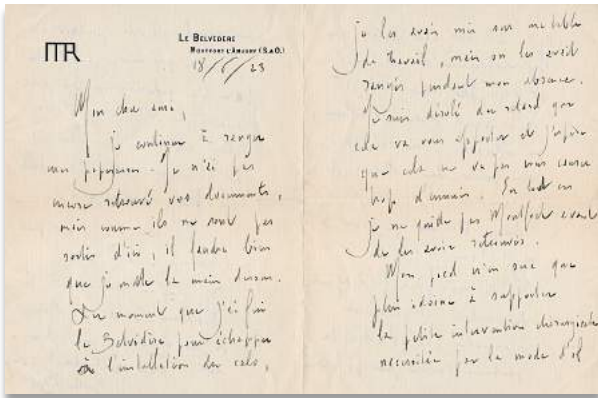 MR
LE BELVÉDÈRE
MONTFORT L'AMAURY (S.&O.)
18/6/23
Mon cher ami,
je continue à ranger
mes paperasses. Je n'ai pas
encore retrouvé vos documents,
mais comme ils ne sont pas
sortis d'ici, il faudra bien
que je mette la main dessus.
Du moment que j'ai fui
le Belvédère pour échapper
à l'installation du
je les avais mis sur ma table
de travail, mais on les avait
rangés pendant mon absence.
Je suis désolé du retard que
cela va vous apporter et j'espère
que cela ne va pas vous causer
trop d'ennuis. En tout cas
je ne quitte pas Montfort avant
de les avoir retrouvés.
Mon pied n'en sera que
plus idoine à supporter
la petite intervention chirurgicale
nécessitée par la mode